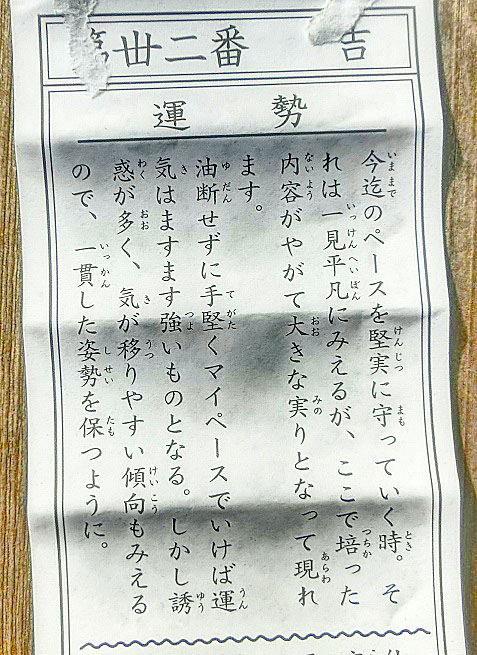 第廿二番 吉
運勢
今迄のペースを堅実に守っていく時。そ
れは一見平凡にみえるが、ここで培った
内容がやがて大きな実りとなって現れ
ます。
油断せずに手堅くマイペースでいけば運
気はますます強いものとなる。しかし誘
惑が多く、気が移りやすい傾向もみえる
ので、一貫した姿勢を保つように。